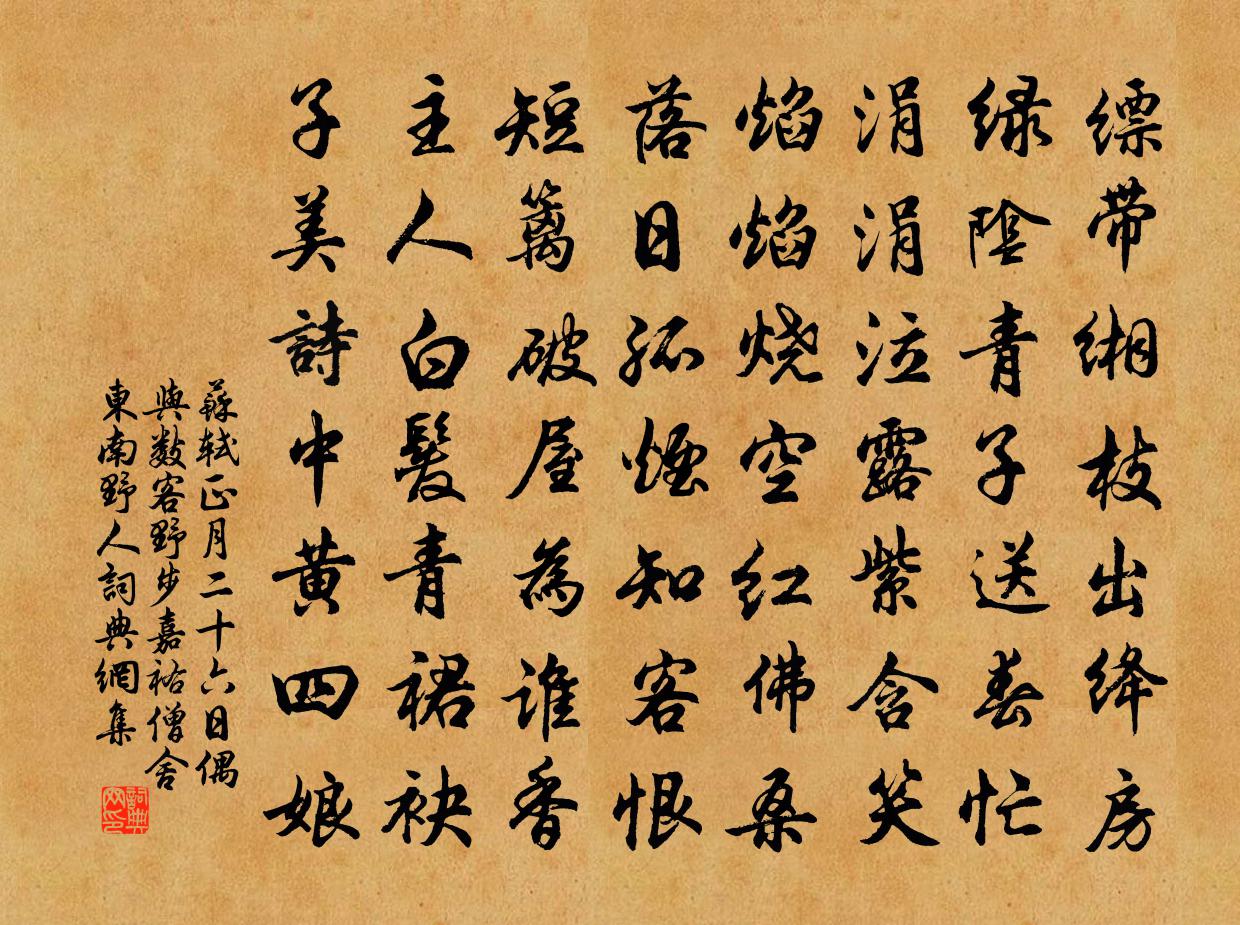 缥帶缃枝出绛房
绿陰青子送春忙
涓涓泣露紫含笑
焰焰烧空红佛桑
落日孤煙知客恨
短籬破屋為誰香
主人白髮青裙袂
子美詩中黄四娘
蘇軾正月二十六日偶
與数客野步嘉祐僧舍
東南野人詞典網集
詞典
网印